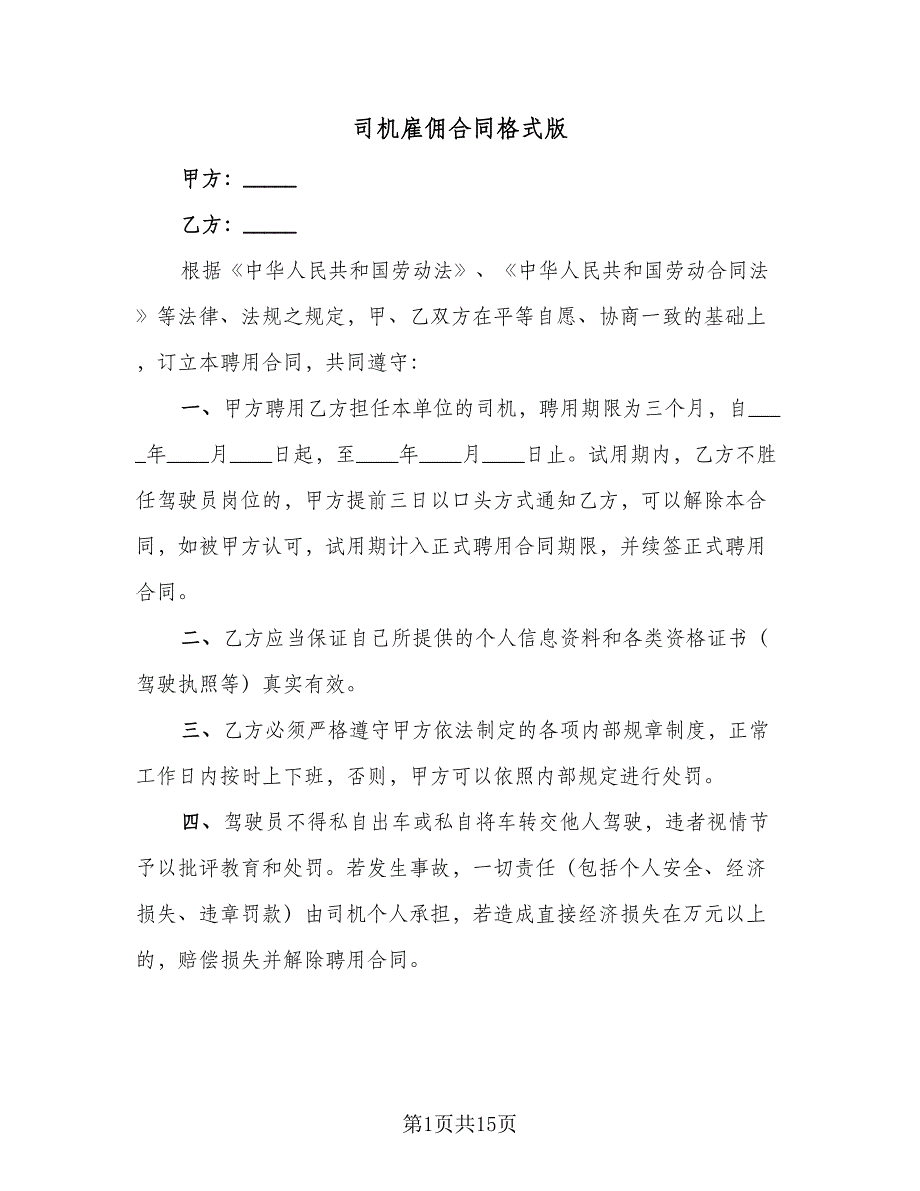 司机雇佣合同格式版
甲方：_____
乙方：_____
根据《中华人民共和国劳动法》、《中华人民共和国劳动合同法
》等法律、法规之规定，甲、乙双方在平等自愿、协商一致的基础上
，订立本聘用合同，共同遵守：
一、甲方聘用乙方担任本单位的司机，聘用期限为三个月，自___
_年____月____日起，至____年____月____日止。试用期内，乙方不胜
任驾驶员岗位的，甲方提前三日以口头方式通知乙方，可以解除本合
同，如被甲方认可，试用期计入正式聘用合同期限，并续签正式聘用
合同。
二、乙方应当保证自己所提供的个人信息资料和各类资格证书（
驾驶执照等）真实有效。
三、乙方必须严格遵守甲方依法制定的各项内部规章制度，正常
工作日内按时上下班，否则，甲方可以依照内部规定进行处罚。
四、驾驶员不得私自出车或私自将车转交他人驾驶，违者视情节
予以批评教育和处罚。若发生事故，一切责任（包括个人安全、经济
损失、违章罚款）由司机个人承担，若造成直接经济损失在万元以上
的，赔偿损失并解除聘用合同。
第1页共15页